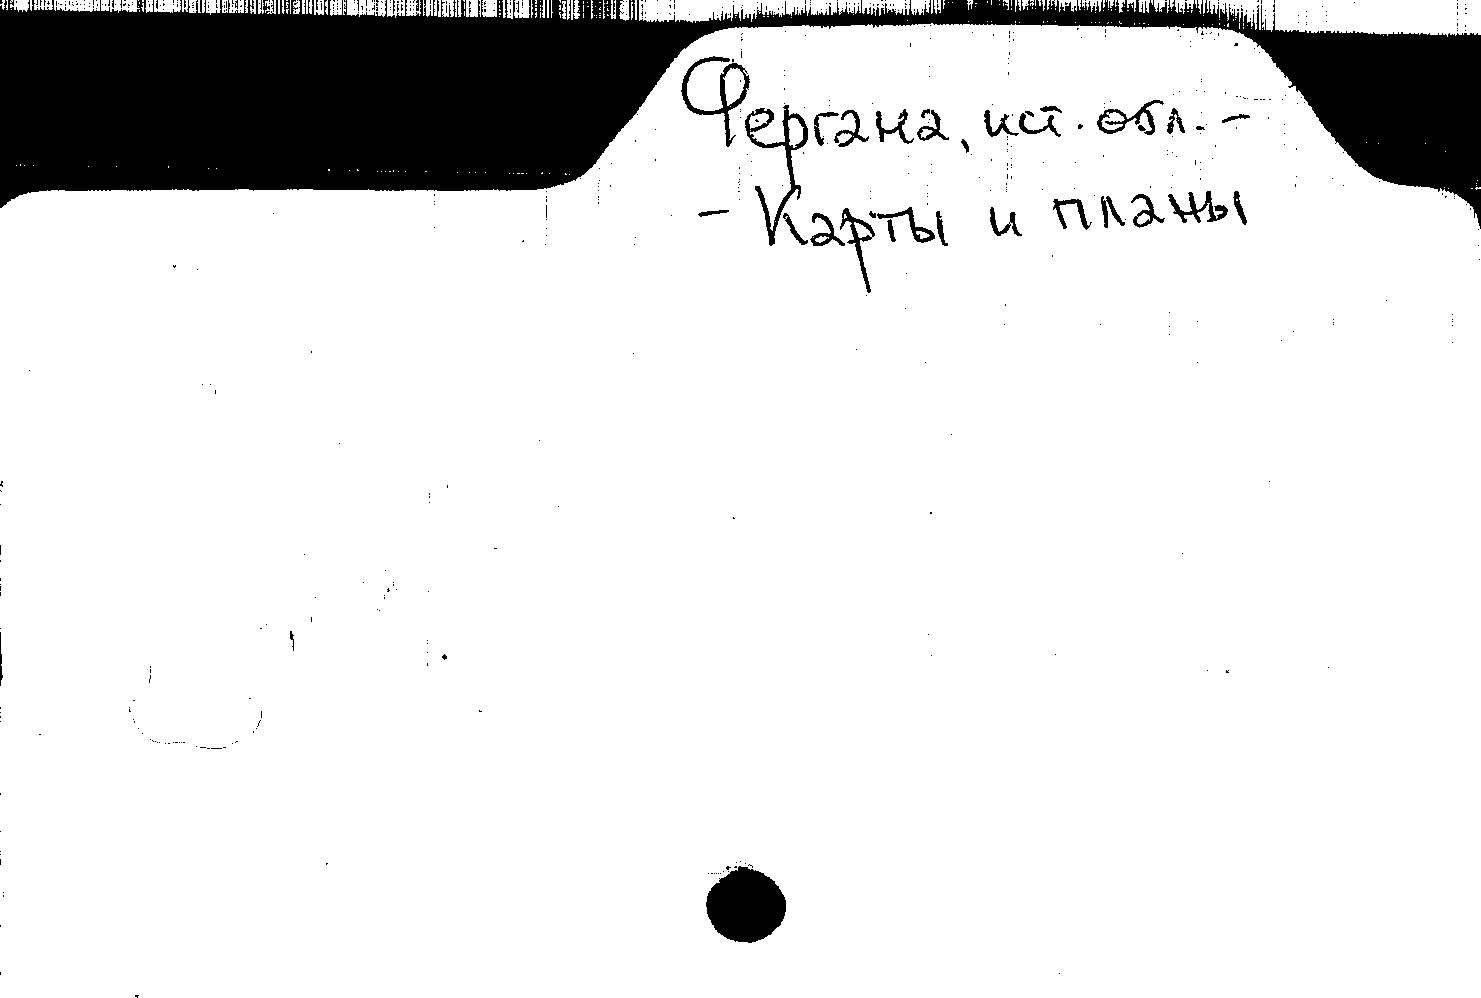 Фергана, ист. обл. -
- Карты и планы